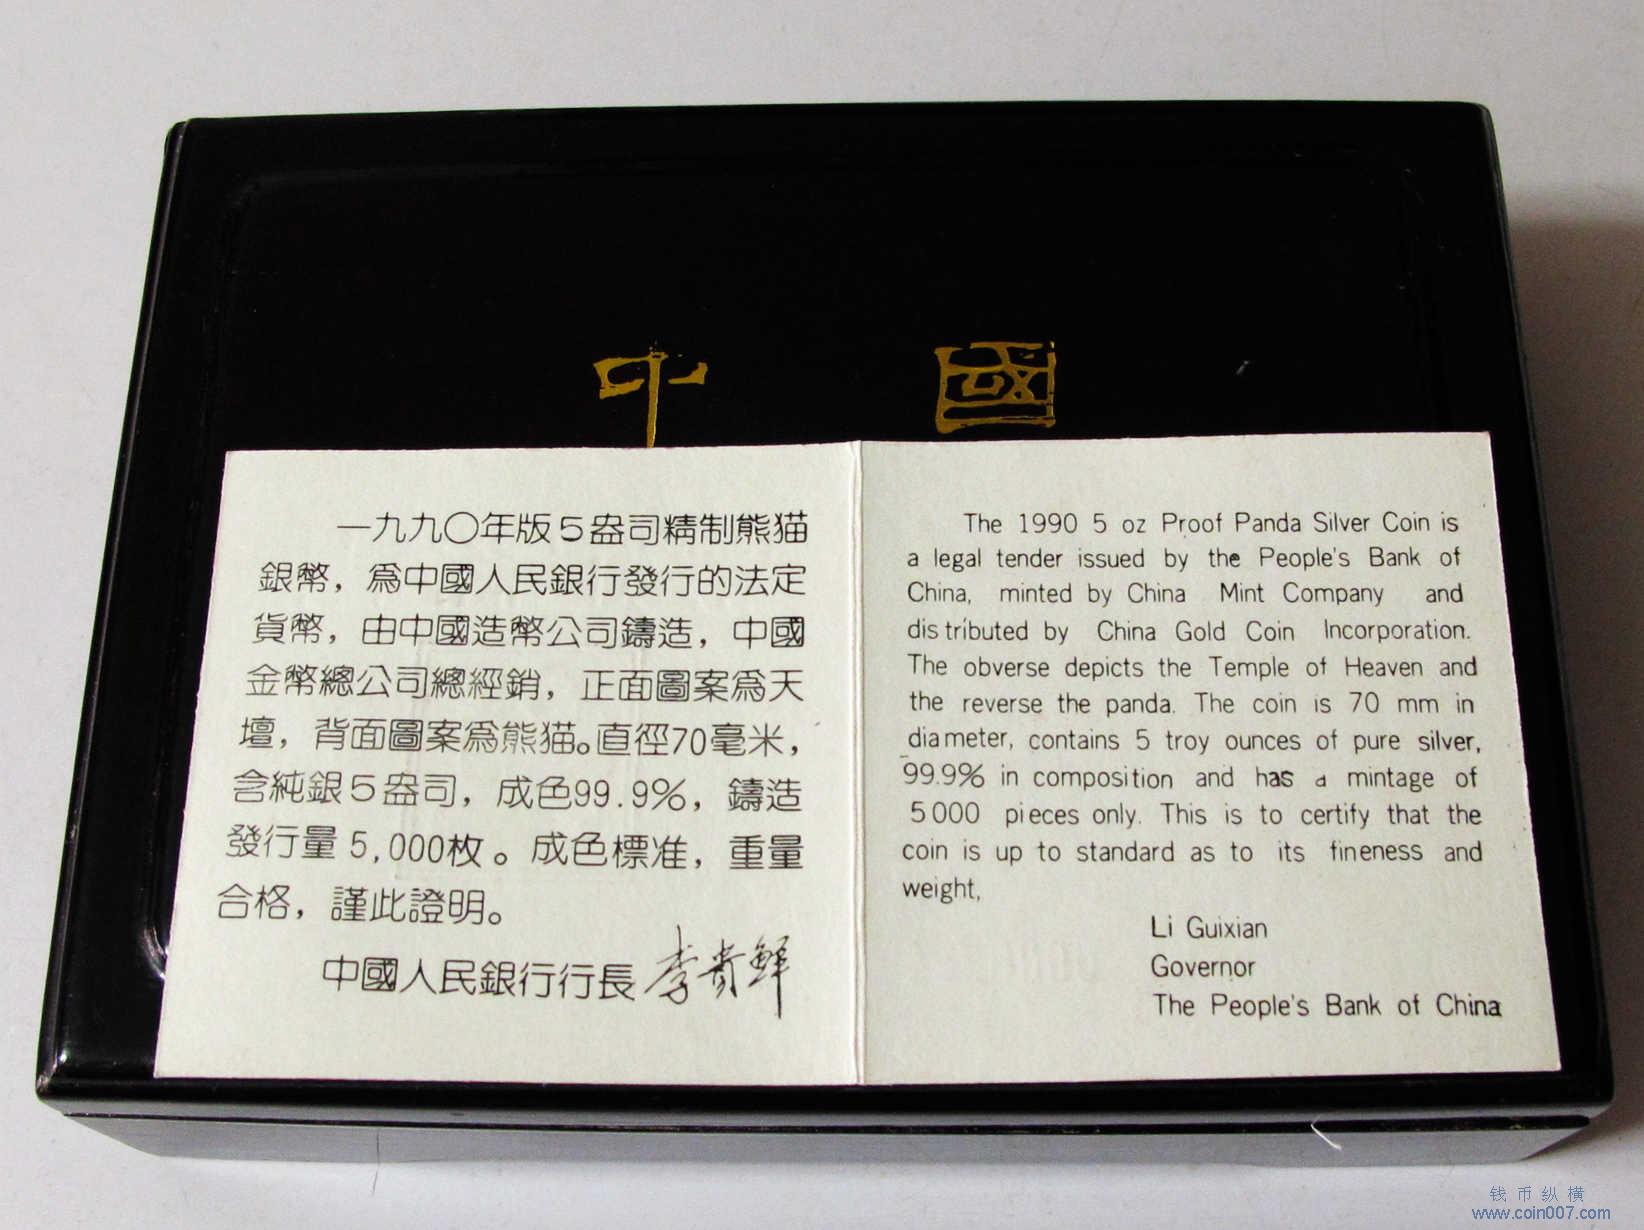 中 國
一九九〇年版5盎司精制熊猫
銀幣，爲中國人民銀行發行的法定
貨幣，由中國造幣公司鑄造，中國
金幣總公司總經銷，正面圖案爲天
壇，背面圖案爲熊猫。直徑70毫米，
含純銀5盎司，成色99.9%，鑄造
發行量5,000枚。成色標准，重量
合格，謹此證明。
中國人民銀行行長 李贵鲜
The 1990 5 oz Proof Panda Silver Coin is
a legal tender issued by the People's Bank of
China, minted by China Mint Company and
distributed by China Gold Coin Incorporation.
The obverse depicts the Temple of Heaven and
the reverse the panda. The coin is 70 mm in
diameter, contains 5 troy ounces of pure silver,
99.9% in composition and has a mintage of
5000 pieces only. This is to certify that the
coin is up to standard as to its fineness and
weight,
Li Guixian
Governor
The People's Bank of China
钱币纵横
www.coin007.com